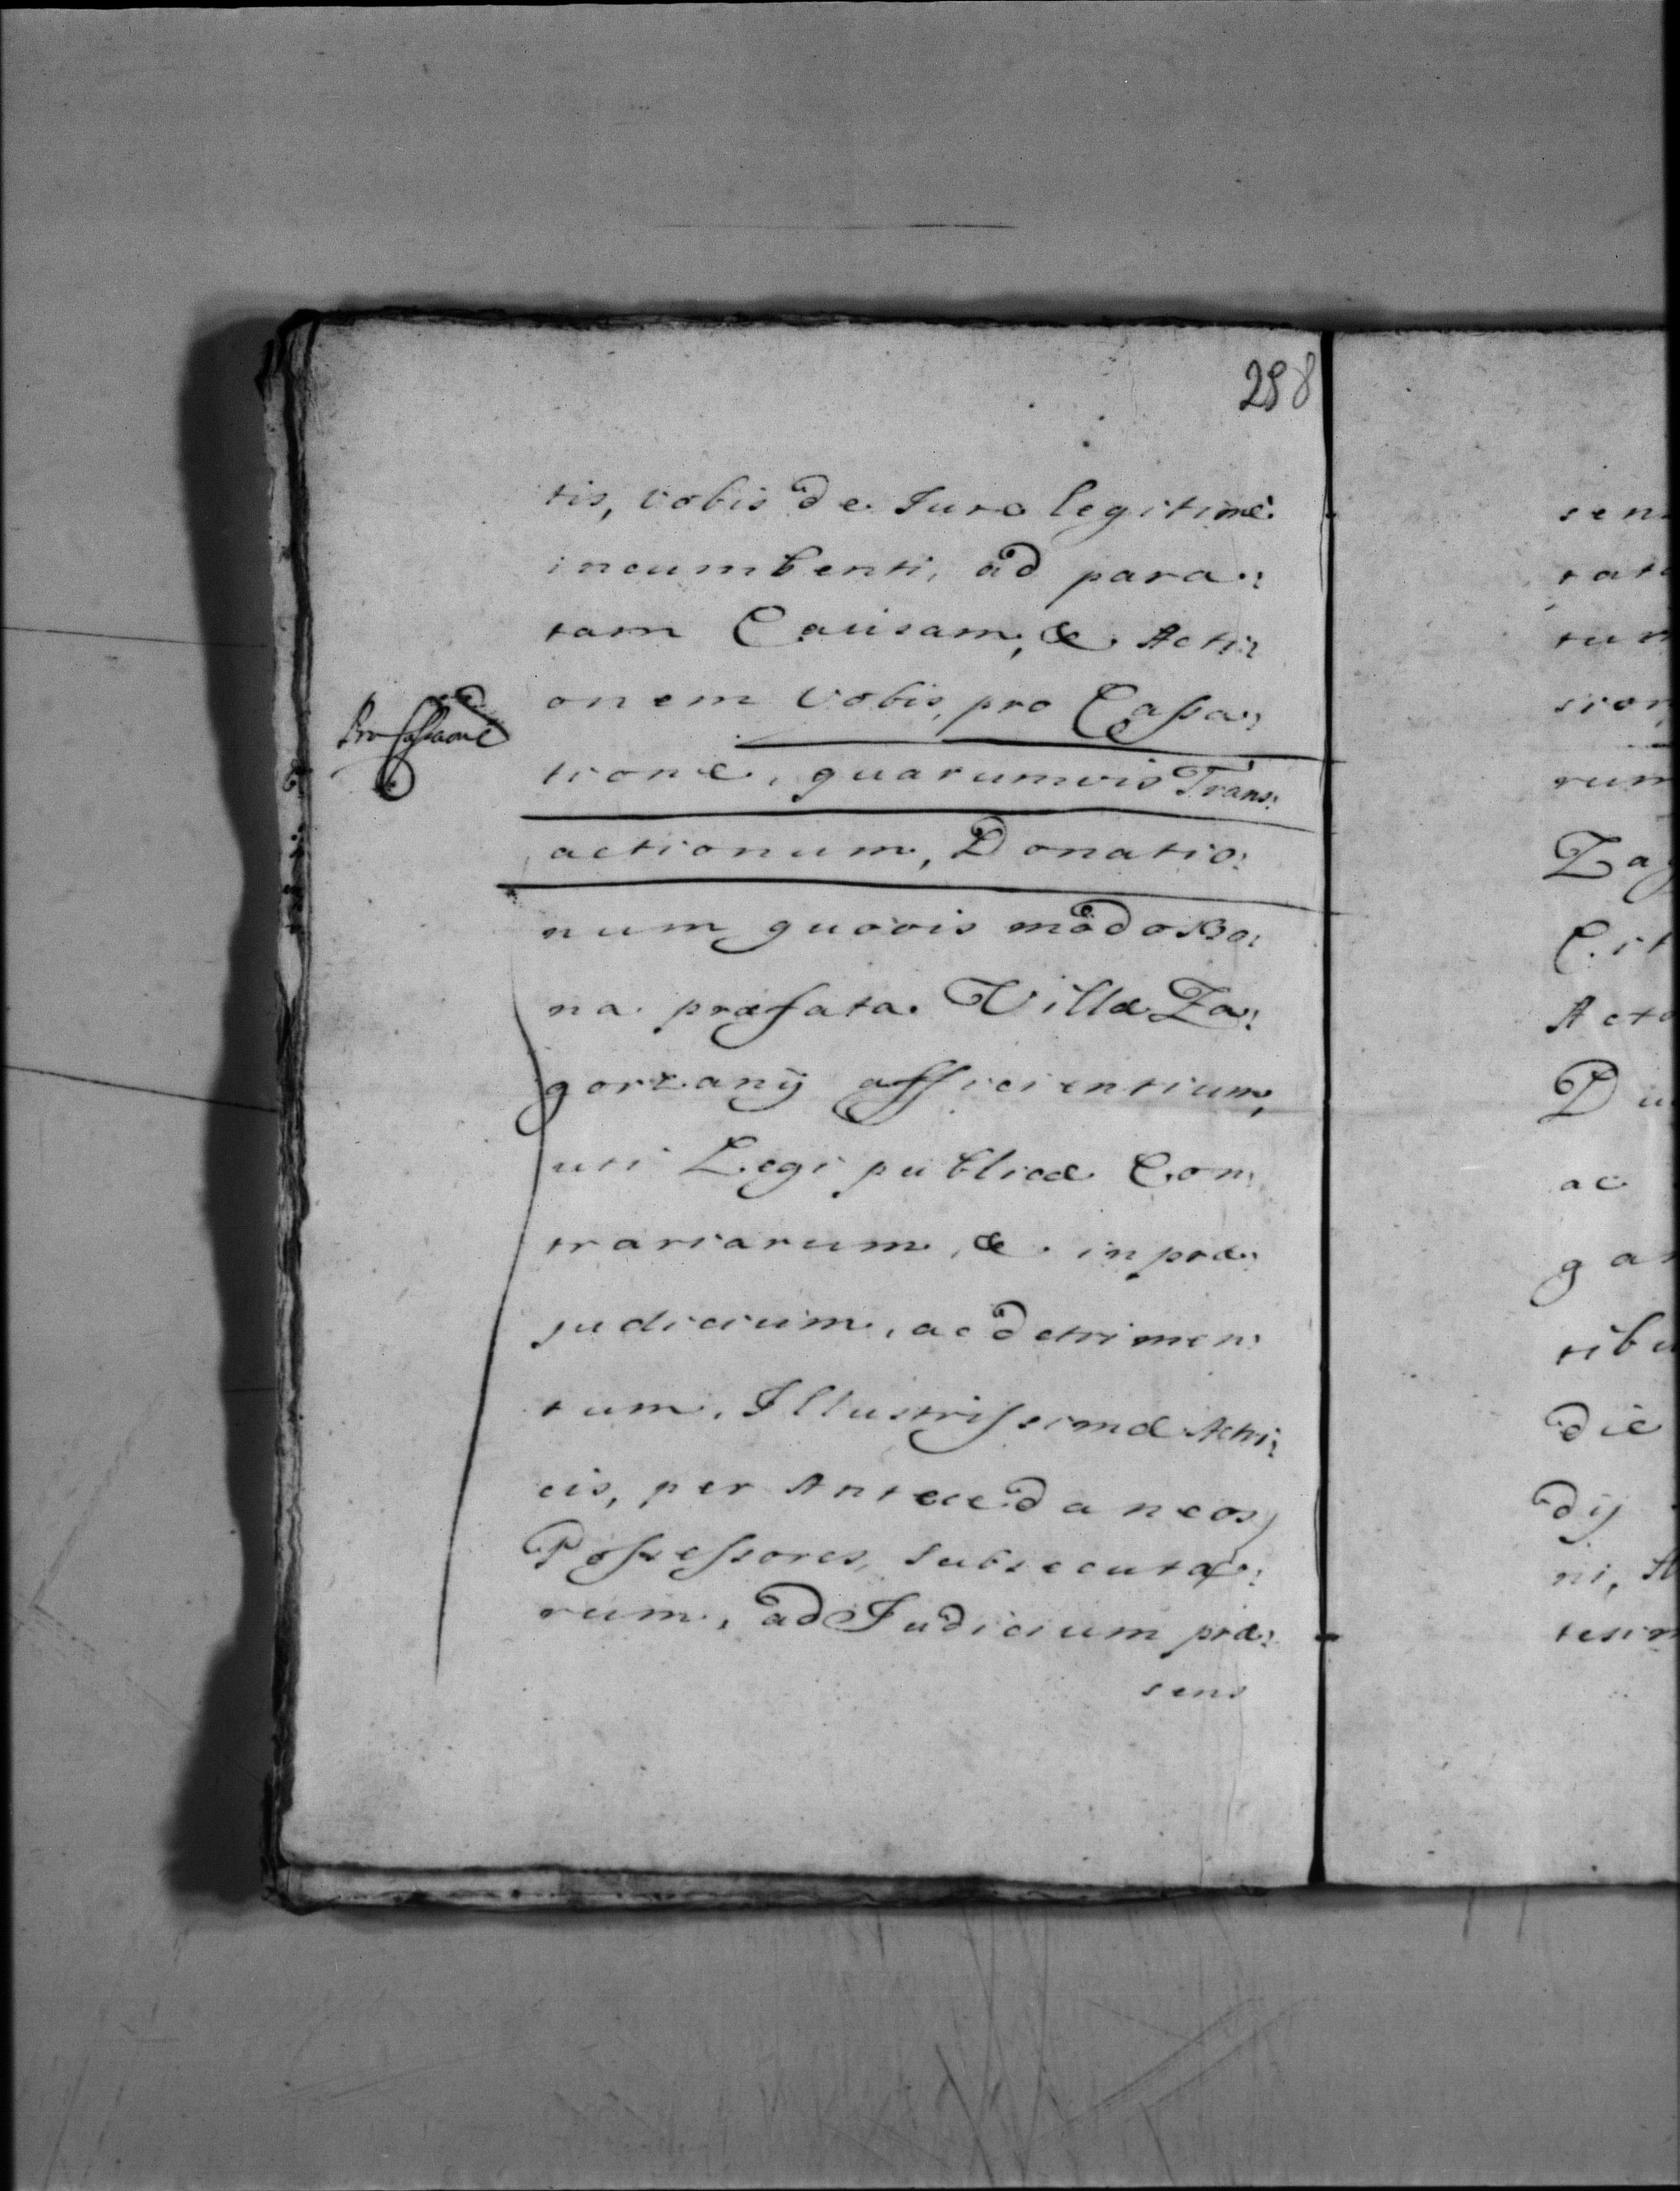 298
tis, vobis de Jure legitimè
incumbenti, ad para:
tam Causam, & Acti:
onem vobis, pro Cassa:
tione, quarumvis Trans:
actionum, Donatio:
num quovis modo Bo:
na præfata Villæ Za:
gorzany afficientium,
uti Legi publicæ Con:
trariarum, & in præ:
judicium, ac detrimen:
tum, Illustrissimæ Actri:
cis, per Antecedaneos
Possessores, subsecuta:
rum, ad Judicium præ:
sens
Pro Cassaone
sen
rat
tum
sion
rum
Zag
Cit
Act
Du
ac
gar
ribu
die
dij
ni, A
tesim